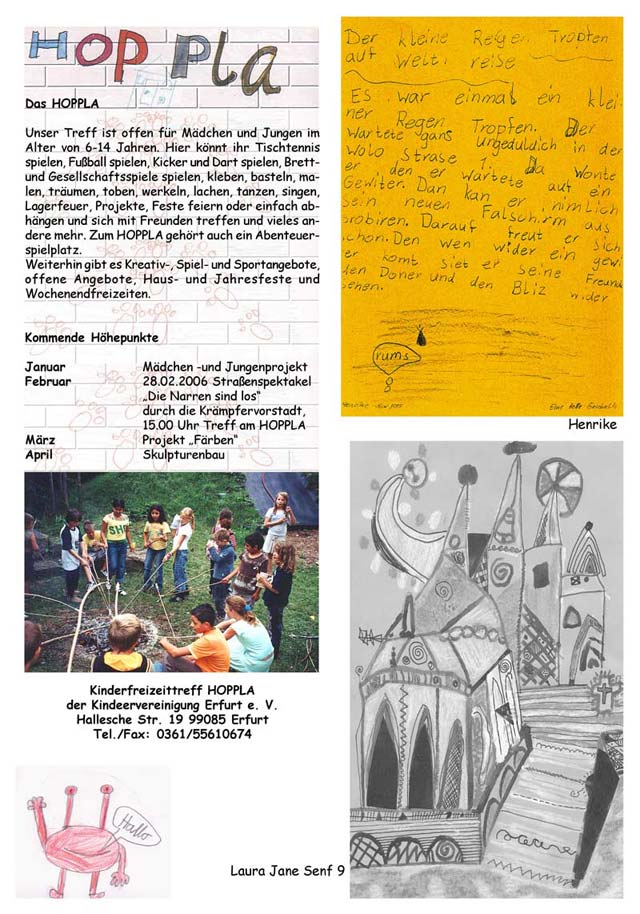 HOPPLA
Das HOPPLA
Unser Treff ist offen für Mädchen und Jungen im
Alter von 6-14 Jahren. Hier könnt ihr Tischtennis
spielen, Fußball spielen, Kicker und Dart spielen, Brett-
und Gesellschaftsspiele spielen, kleben, basteln, ma-
len, träumen, toben, werkeln, lachen, tanzen, singen,
Lagerfeuer, Projekte, Feste feiern oder einfach ab-
hängen und sich mit Freunden treffen und vieles an-
dere mehr. Zum HOPPLA gehört auch ein Abenteuer-
spielplatz.
Weiterhin gibt es Kreativ-, Spiel- und Sportangebote,
offene Angebote, Haus- und Jahresfeste und
Wochenendfreizeiten.
Kommende Höhepunkte
Januar Mädchen -und Jungenprojekt
Februar 28.02.2006 Straßenspektakel
„Die Narren sind los“
durch die Krämpfervorstadt,
15.00 Uhr Treff am HOPPLA
März Projekt „Färben“
April Skulpturenbau
Kinderfreizeittreff HOPPLA
der Kindeervereinigung Erfurt e. V.
Hallesche Str. 19 99085 Erfurt
Tel./Fax: 0361/55610674
Hallo
Laura Jane Senf 9
Der kleine Regen Tropfen
auf Welt reise
Es war einmal ein klei
ner Regen Tropfen. Der
Wartete gans ungeduldich in der
Wolo Strase 1. Da Wonte
er den er wartete auf ein
Gewiter. Dan kan er nimlich
sein neuen Falschirm aus
probiren. Darauf freut er sich
schon. Den wen wider ein gewi
er komt siet er seine Freunde
den Doner und den Bliz wider
sehen.
rums
Henrike
Henrike